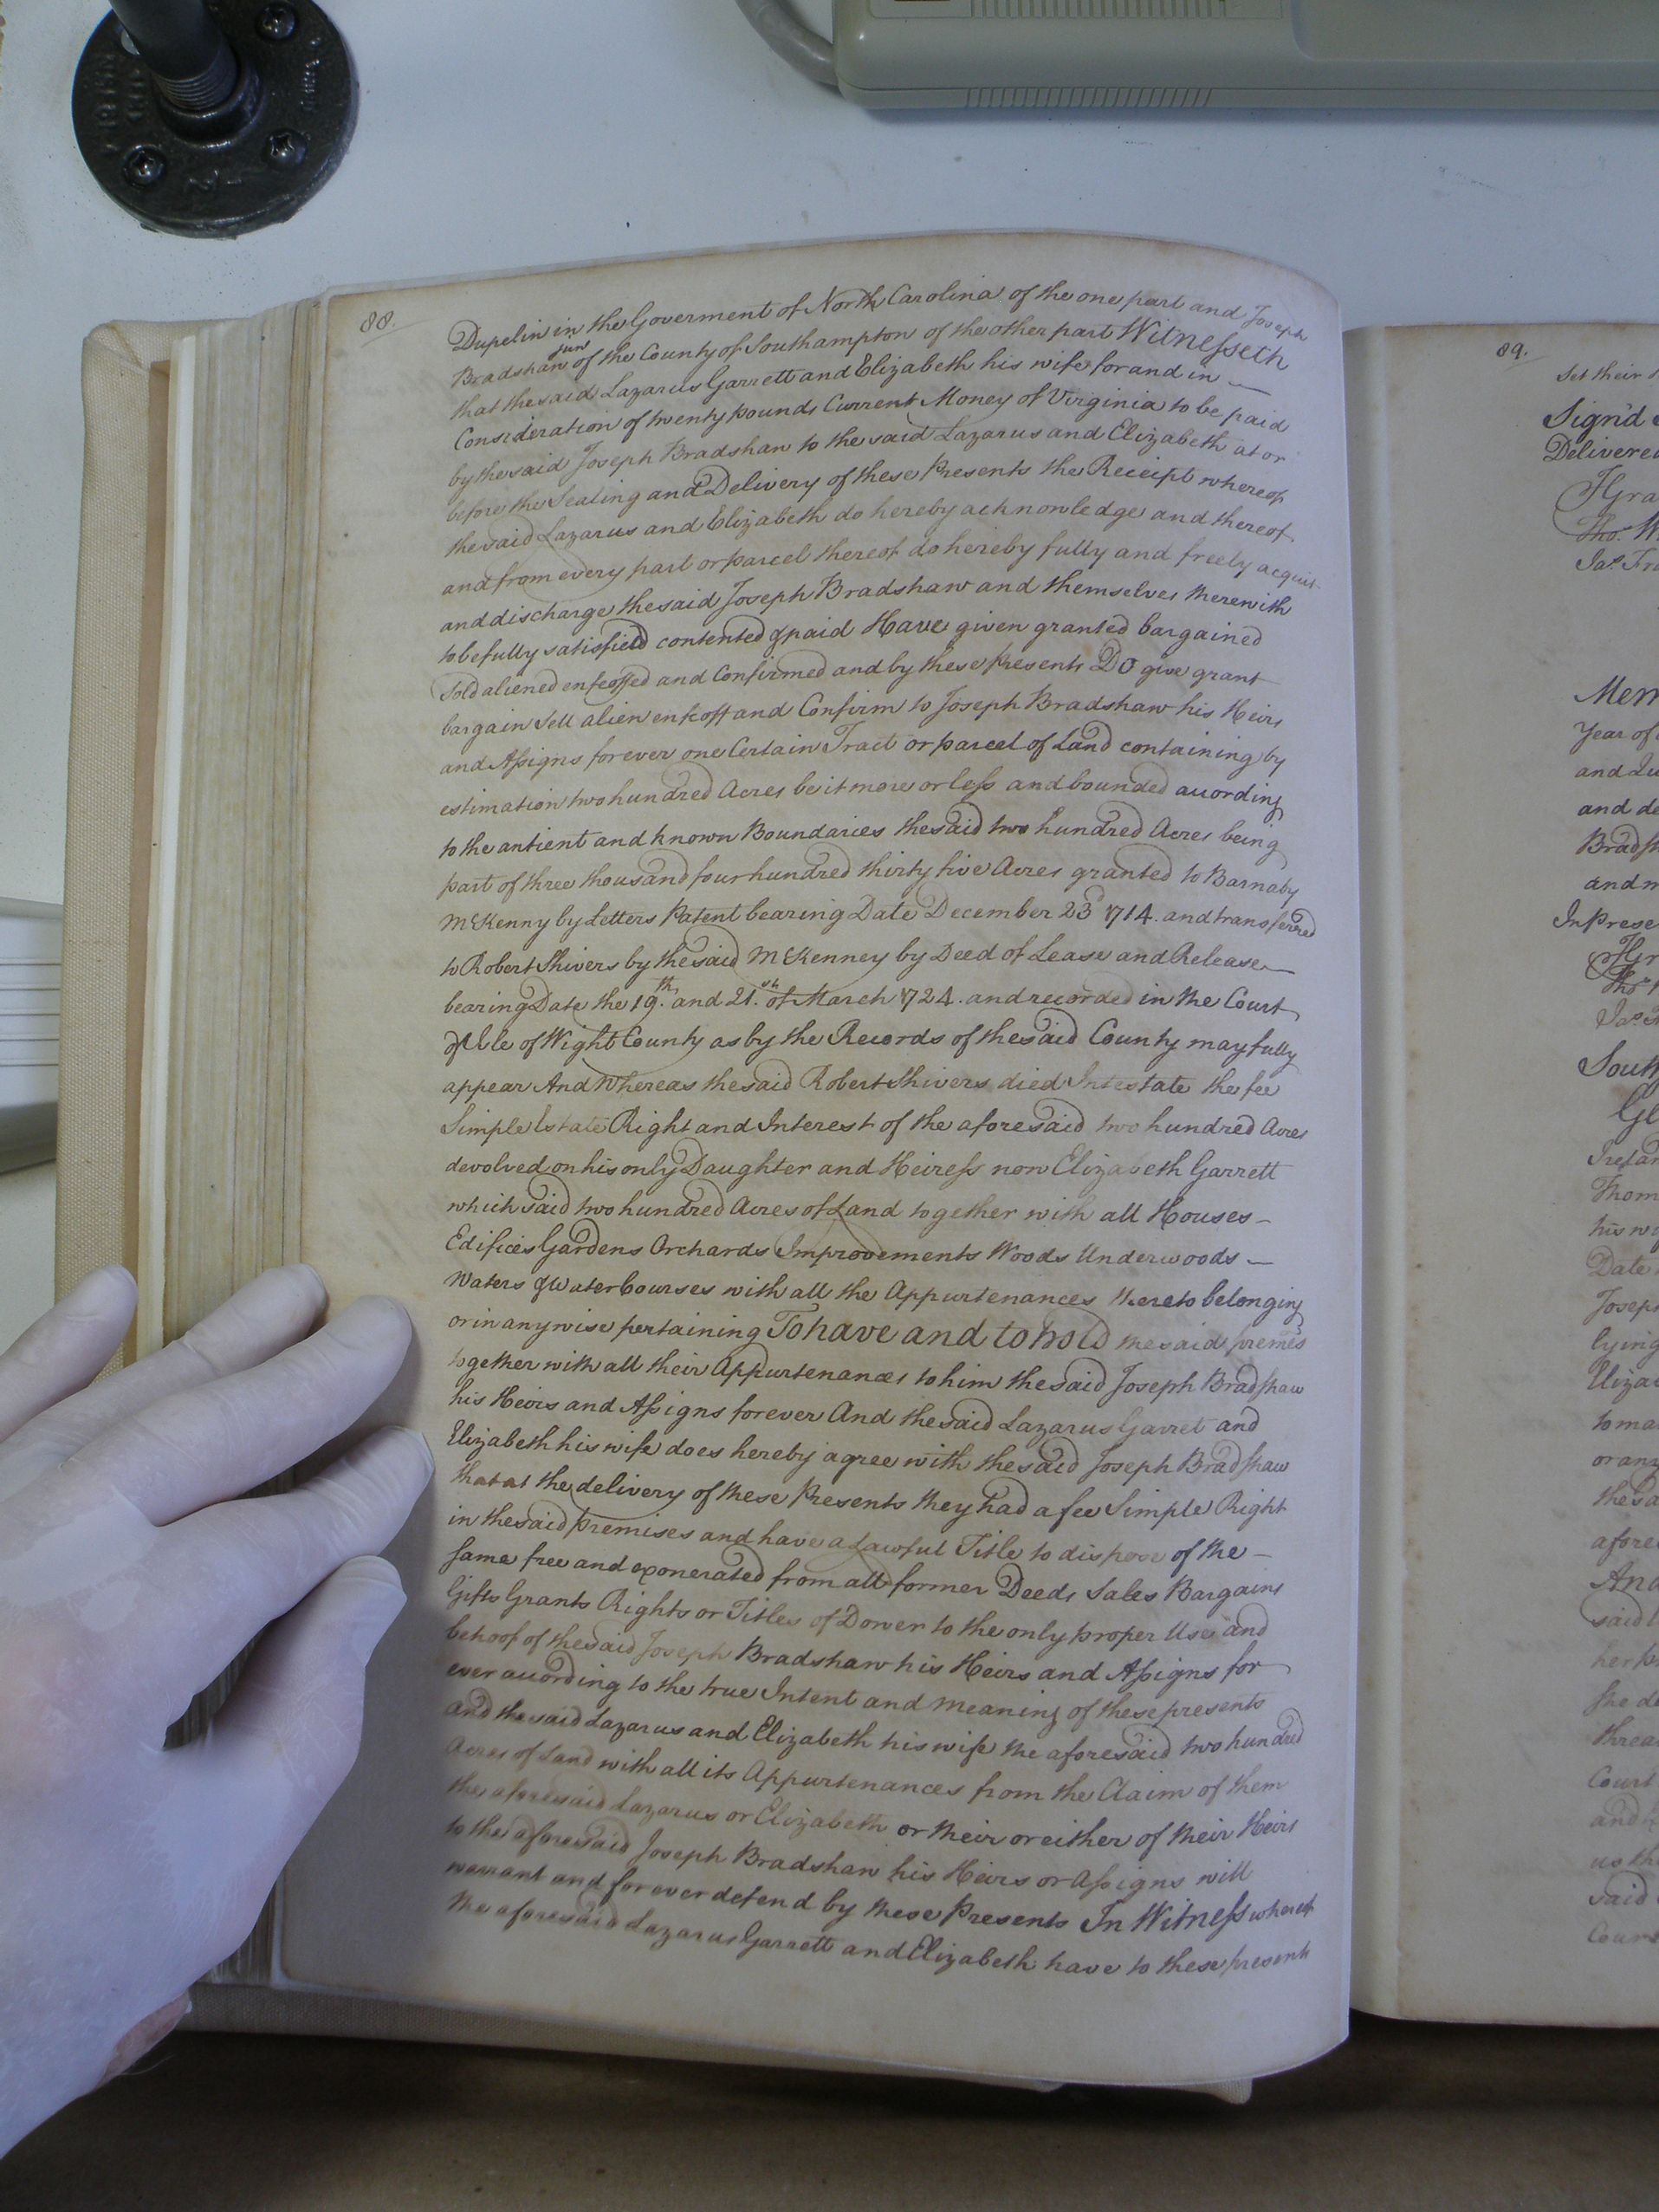 88.
Dupelin in the Goverment of North Carolina of the one part and Joseph
Bradshaw jun of the County of Southampton of the other part Witnesseth
that the said Lazarus Garrett and Elizabeth his wife for and in
Consideration of twenty pounds Current Money of Virginia to be paid
by the said Joseph Bradshaw to the said Lazarus and Elizabeth at or
before the Sealing and Delivery of these Presents the Receipt whereof
the said Lazarus and Elizabeth do hereby acknowledge and thereof
and from every part or parcel thereof do hereby fully and freely acquit
and discharge the said Joseph Bradshaw and themselves therewith
to be fully satisfied contented & paid Have given granted bargained
sold aliened enfeoffed and Confirmed and by these Presents Do give grant
bargain Sell alien enfeoff and Confirm to Joseph Bradshaw his Heirs
and Assigns for ever one Certain Tract or parcel of Land containing by
estimation two hundred Acres be it more or less and bounded according
to the antient and known Boundaries the said two hundred Acres being
part of three thousand four hundred thirty five Acres granted to Barnaby
McKenny by Letters Patent bearing Date December 23d 1714. and transferred
to Robert Shivers by the said McKenney by Deed of Lease and Release
bearing Date the 19th. and 21.st of March 1724. and recorded in the Court
of Isle of Wight County as by the Records of the said County may fully
appear And Whereas the said Robert Shivers died Intestate the fee
Simple Estate Right and Interest of the aforesaid two hundred Acres
devolved on his only Daughter and Heiress now Elizabeth Garrett
which said two hundred Acres of Land together with all Houses
Edifices Gardens Orchards Improvements Woods Underwoods
Waters & Water Courses with all the Appurtenances thereto belonging
or in any wise pertaining To have and to hold the said premes
together with all their Appurtenances to him the said Joseph Bradshaw
his Heirs and Assigns forever And the said Lazarus Garret and
Elizabeth his wife does hereby agree with the said Joseph Bradshaw
that at the delivery of these Presents they had a fee Simple Right
in the said premises and have a Lawful Title to dispose of the
same free and exonerated from all former Deeds Sales Bargains
Gifts Grants Rights or Titles of Dower to the only proper Use and
behoof of the said Joseph Bradshaw his Heirs and Assigns for
ever according to the true Intent and meaning of these presents
and the said Lazarus and Elizabeth his wife the aforesaid two hundred
Acres of Land with all its Appurtenances from the Claim of them
the aforesaid Lazarus or Elizabeth or their or either of their Heirs
to the aforesaid Joseph Bradshaw his Heirs or Assigns will
warrant and for ever defend by these Presents In Witness whereof
the aforesaid Lazarus Garrett and Elizabeth have to these presents
89.
Set their
Sign'd
Delivered
Year of
and de
and m
In Prese
Thom
his wi
Date
Joseph
lying
Eliza
to ma
or any
the sa
afore
And
said
her p
She de
threa
Court
and
us the
said
Coun